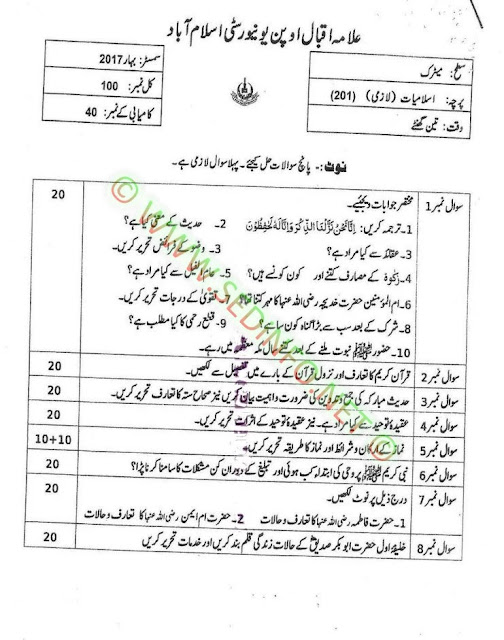 علامہ اقبال اوپن یونیورسٹی اسلام آباد
سطح: میٹرک
پرچہ: اسلامیات (لازمی) (201)
وقت: تین گھنٹے
سمسٹر: بہار 2017
کل نمبر: 100
کامیابی کے نمبر: 40
نوٹ:- پانچ سوالات حل کیجئے۔ پہلا سوال لازمی ہے۔
سوال نمبر 1 مختصر جوابات دیجئیے۔ 20
1۔ ترجمہ کریں: اِنَّا نَحْنُ نَزَّلْنَا الذِّكْرَ وَاِنَّا لَهٗ لَحٰفِظُوْنَ 2۔ حدیث کے معنی کیا ہے؟
3۔ عقائد سے کیا مراد ہے؟ 3۔ وضو کے فرائض تحریر کریں۔
4۔ زکوٰۃ کے مصارف کتنے اور کون کونسے ہیں؟ 5۔ عام الفیل سے کیا مراد ہے؟
6۔ ام المؤمنین حضرت خدیجہ رضی اللہ عنہا کا مہر کتنا تھا؟ 7۔ تقویٰ کے درجات تحریر کریں۔
8۔ شرک کے بعد سب سے بڑا گناہ کون سا ہے؟ 9۔ قطع رحمی کا کیا مطلب ہے؟
10۔ حضور ﷺ نبوت ملنے کے بعد کتنے سال مکہ معظمہ میں رہے۔
سوال نمبر 2 قرآن کریم کا تعارف اور نزول قرآن کے بارے میں تفصیل سے لکھیں۔ 20
سوال نمبر 3 حدیث مبارکہ کی جمع و تدوین کی ضرورت و اہمیت بیان کریں نیز صحاح ستہ کا تعارف تحریر کریں۔ 20
سوال نمبر 4 عقیدۂ توحید سے کیا مراد ہے۔ نیز عقیدۂ توحید کے اثرات تحریر کریں۔ 20
سوال نمبر 5 نماز کے ارکان و شرائط اور نماز کا طریقہ تحریر کریں۔ 10+10
سوال نمبر 6 نبی کریم ﷺ پر وحی کی ابتداء کب ہوئی اور تبلیغ کے دوران کن مشکلات کا سامنا کرنا پڑا؟ 20
سوال نمبر 7 درج ذیل پر نوٹ لکھیں۔ 20
1۔ حضرت فاطمہ رضی اللہ عنہا کا تعارف و حالات 2۔ حضرت ام ایمن رضی اللہ عنہا کا تعارف و حالات
سوال نمبر 8 خلیفۂ اول حضرت ابو بکر صدیقؓ کے حالات زندگی قلم بند کریں اور خدمات تحریر کریں 20
© WWW.SEDINFO.NET ©